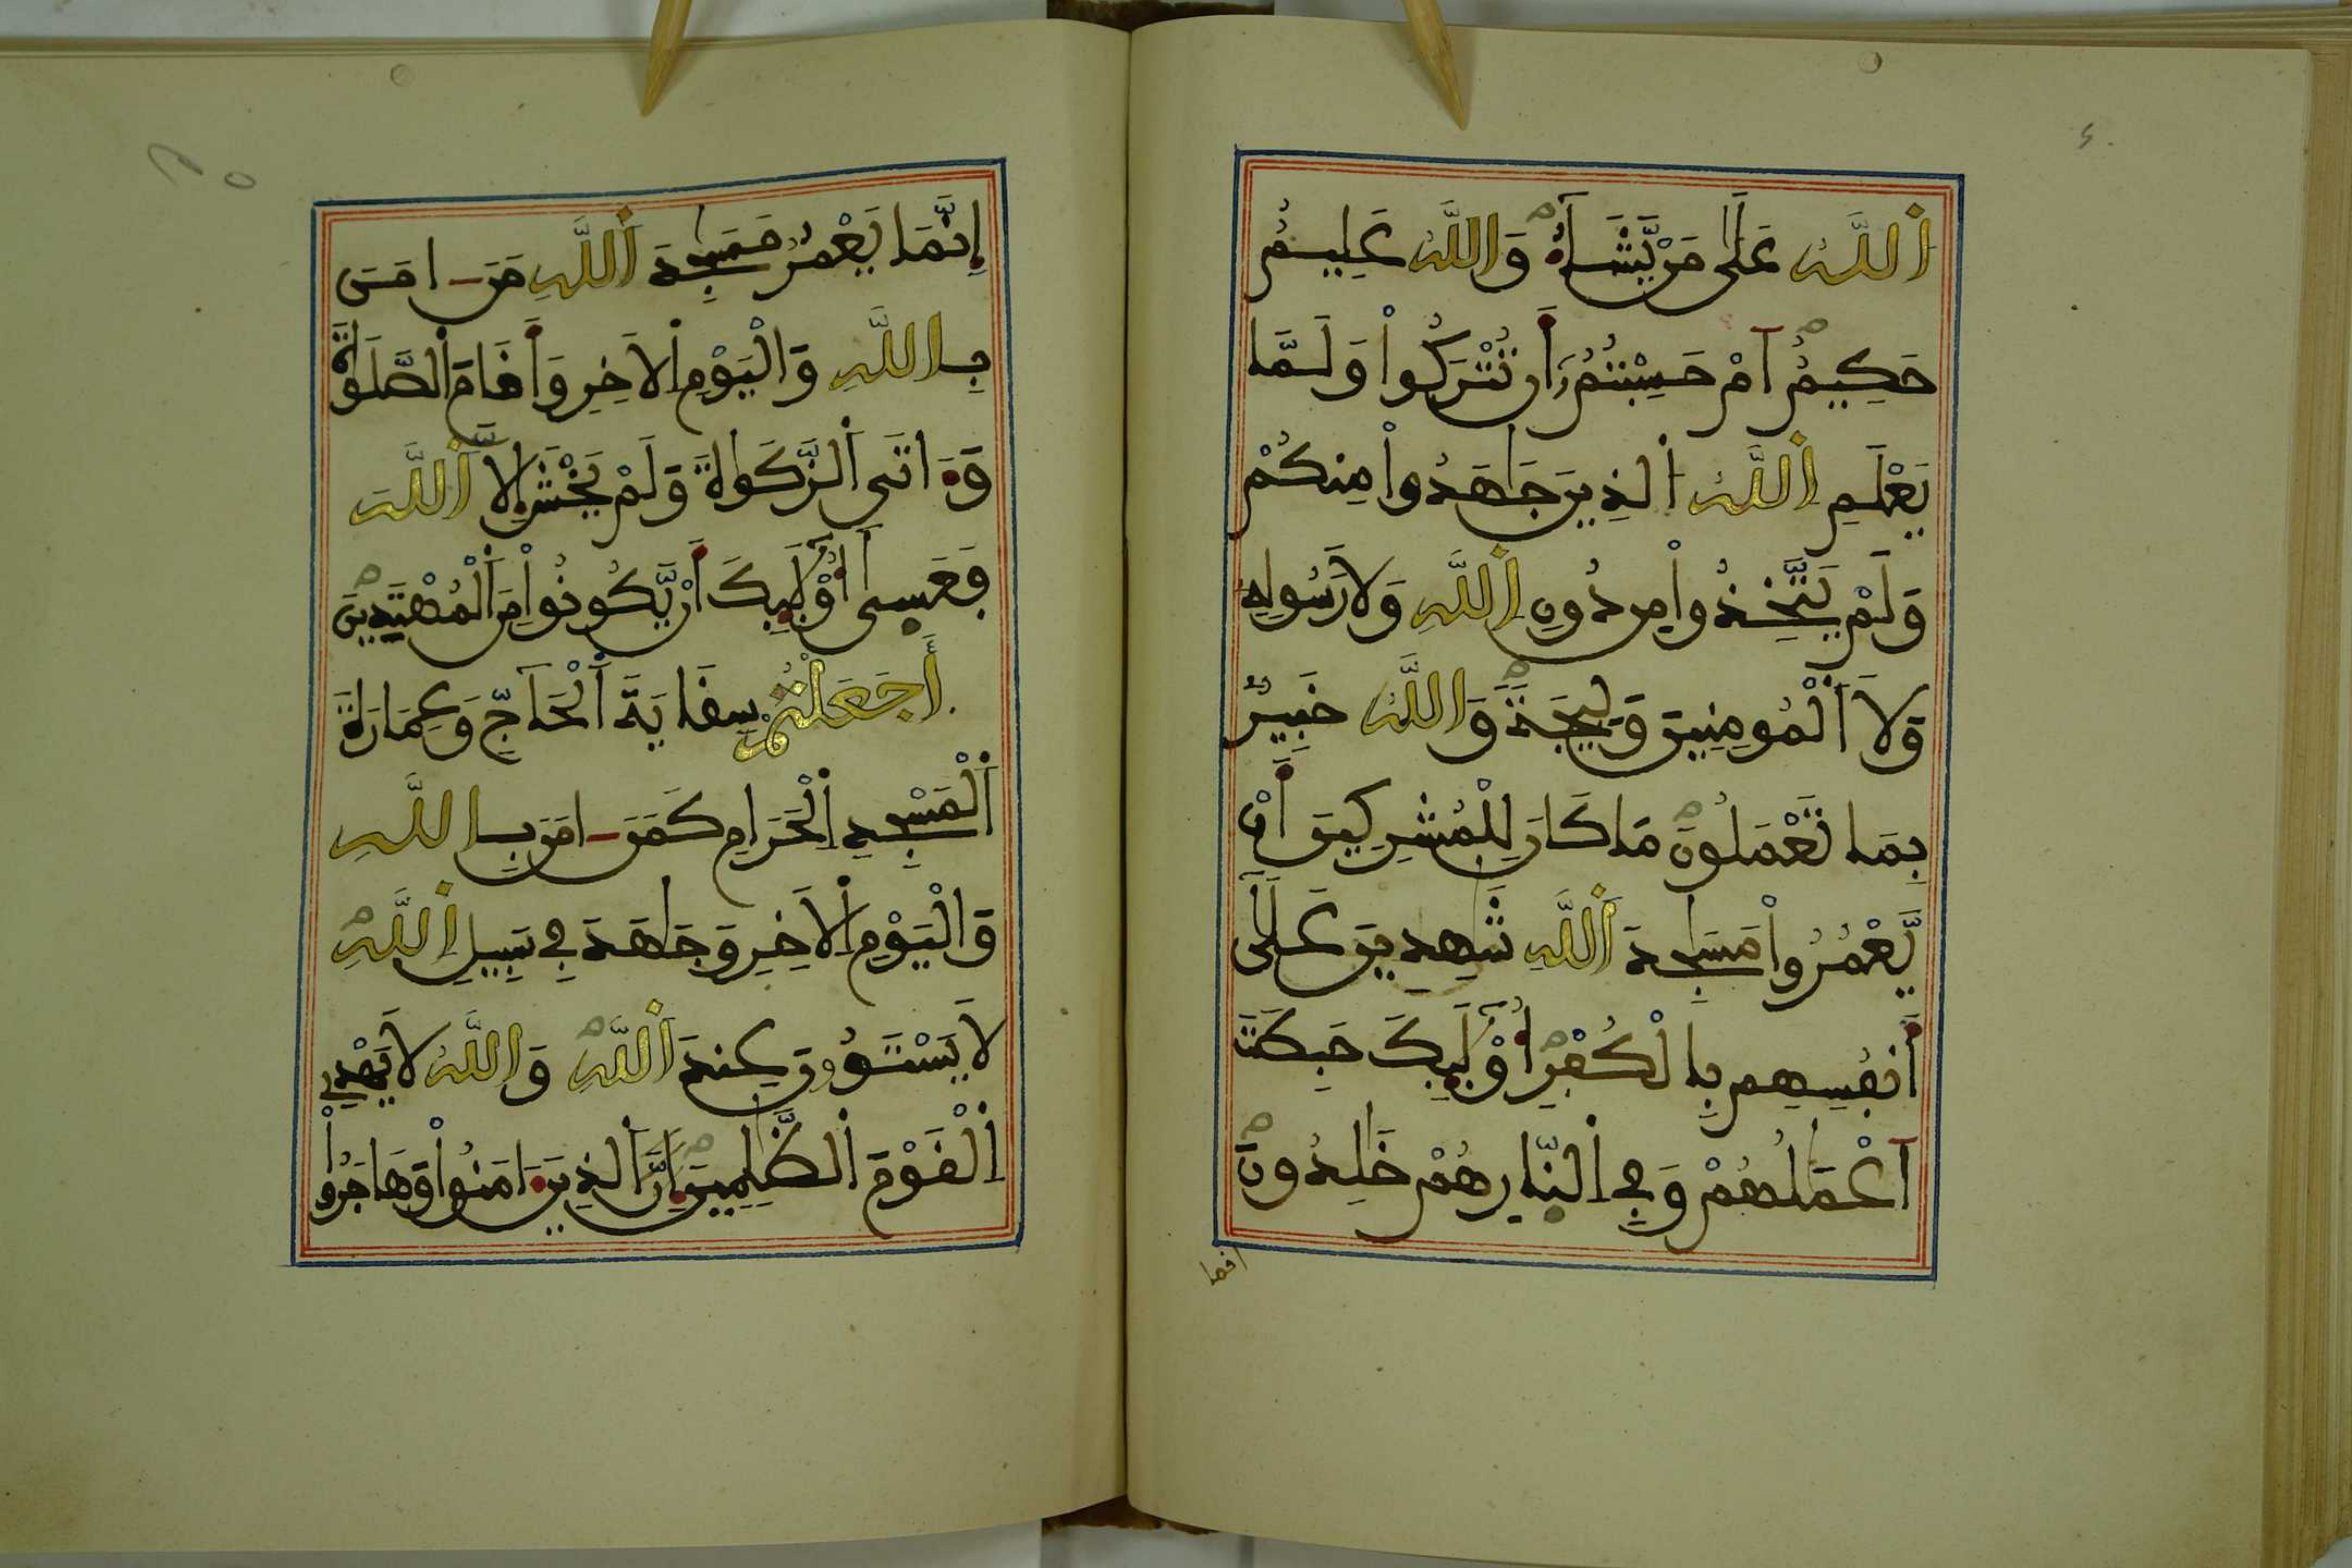 اَ۬للَّهُ عَلَىٰ مَنْ يَّشَآءُ وَاللَّهُ عَلِيمٌ
حَكِيمٌ اَمْ حَسِبْتُمُ أَن تُتْرَكُواْ وَلَمَّا
يَعْلَمِ اِ۬للَّهُ اُ۬لذِينَ جَٰهَدُواْ مِنكُمْ
وَلَمْ يَتَّخِذُواْ مِن دُونِ اِ۬للَّهِ وَلَا رَسُولِهِۦ
وَلَا اَ۬لْمُومِنِينَ وَلِيجَةً وَاللَّهُ خَبِيرٌ
بِمَا تَعْمَلُونَ مَا كَانَ لِلْمُشْرِكِينَ أَنْ
يَّعْمُرُواْ مَسَٰجِدَ اَ۬للَّهِ شَٰهِدِينَ عَلَىٰٓ
أَنفُسِهِم بِالْكُفْرِ أُوْلَٰٓئِكَ حَبِطَتَ
اَعْمَٰلُهُمْ وَفِي اِ۬لنّ۪ارِ هُمْ خَٰلِدُونَ
إنما
إِنَّمَا يَعْمُرُ مَسَٰجِدَ اَ۬للَّهِ مَنَ اٰمَنَ
بِاللَّهِ وَالْيَوْمِ اِ۬لَاخِرِ وَأَقَامَ اَ۬لصَّلَوٰةَ
وَءَاتَى اَ۬لزَّكَوٰةَ وَلَمْ يَخْشَ إِلَّا اَ۬للَّهَ
فَعَس۪ىٰٓ أُوْلَٰٓئِكَ أَنْ يَّكُونُواْ مِنَ اَ۬لْمُهْتَدِينَ
أَجَعَلْتُمْ سِقَايَةَ اَ۬لْحَآجِّ وَعِمَارَةَ
اَ۬لْمَسْجِدِ اِ۬لْحَرَامِ كَمَنَ اٰمَنَ بِاللَّهِ
وَالْيَوْمِ اِ۬لَاخِرِ وَجَٰهَدَ فِي سَبِيلِ اِ۬للَّهِ
لَا يَسْتَوُۥنَ عِندَ اَ۬للَّهِ وَاللَّهُ لَا يَهْدِي
اِ۬لْقَوْمَ اَ۬لظَّٰلِمِينَ إِنَّ اَ۬لذِينَ ءَامَنُواْ وَهَاجَرُواْ